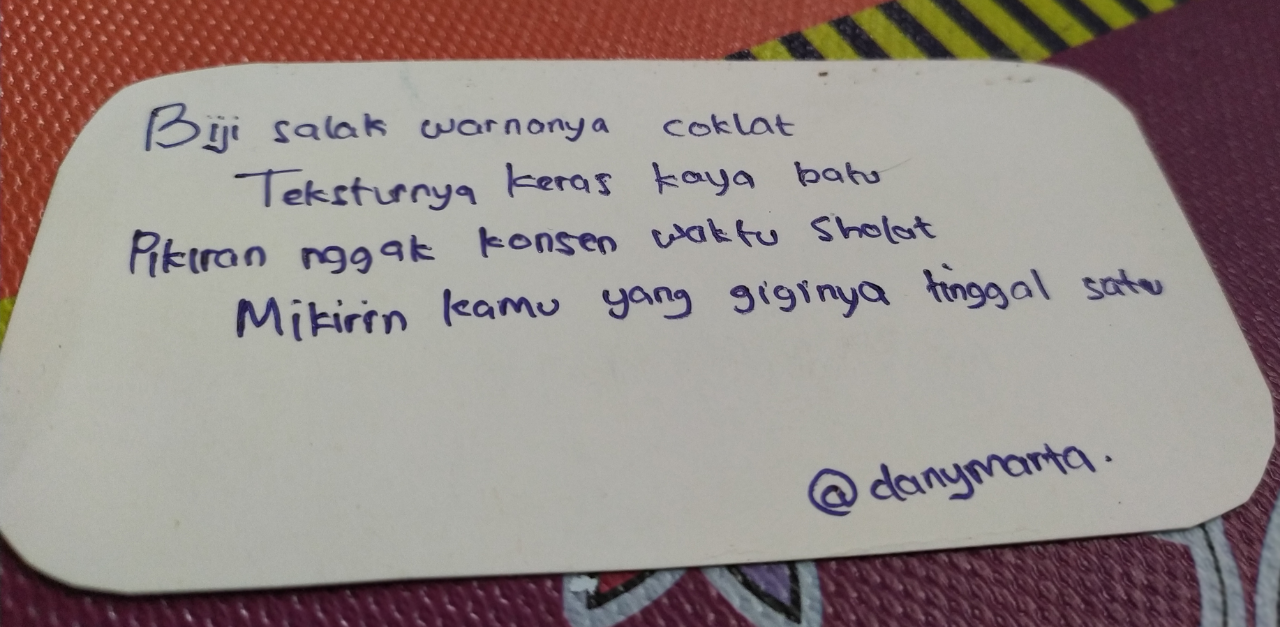 Biji salak warnanya coklat
Teksturnya keras kaya batu
Pikiran nggak konsen waktu Sholat
Mikirin kamu yang giginya tinggal satu
@danymarta.